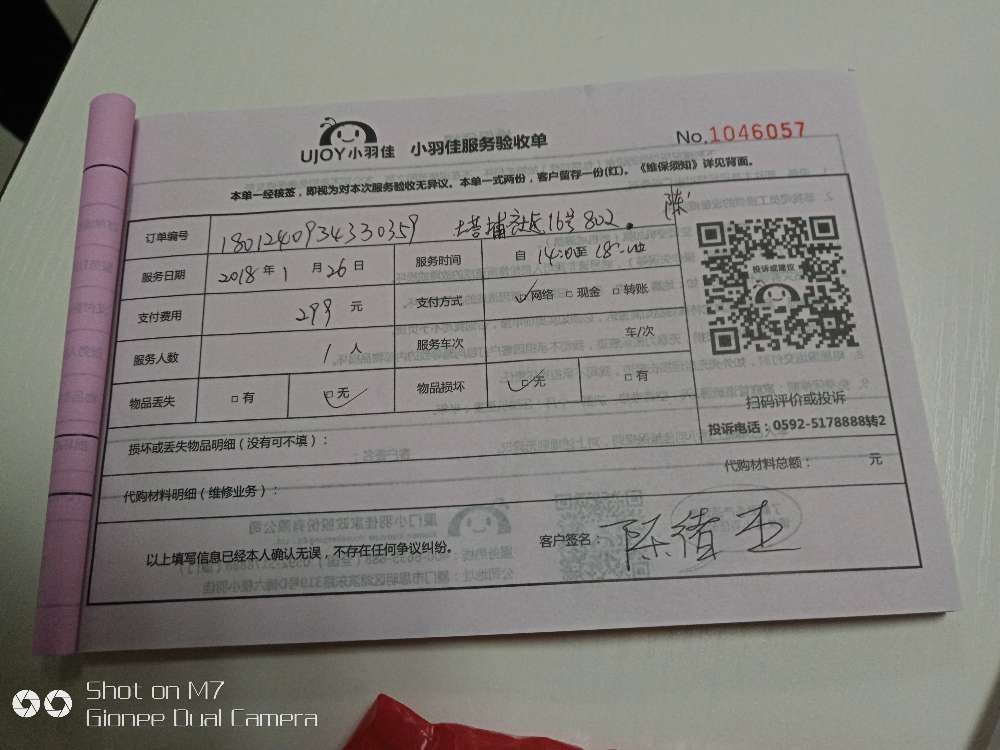 UJOY小羽佳 小羽佳服务验收单
No.1046057
本单一经核签，即视为对本次服务验收无异议。本单一式两份，客户留存一份(红)。《维保须知》详见背面。
订单编号 1801240934330359 塔埔社区16号802。 陈
服务日期 2018年1月26日 服务时间 自14:00至18:00
支付费用 299元 支付方式 ☑网络 □现金 □转账
服务人数 1人 服务车次 车/次
物品丢失 □有 ☑无 物品损坏 ☑无 □有
投诉或建议
扫码评价或投诉
投诉电话：0592-5178888转2
损坏或丢失物品明细（没有可不填）：
代购材料明细（维修业务）： 代购材料总额： 元
以上填写信息已经本人确认无误，不存在任何争议纠纷。 客户签名：陈
Shot on M7
Gionee Dual Camera